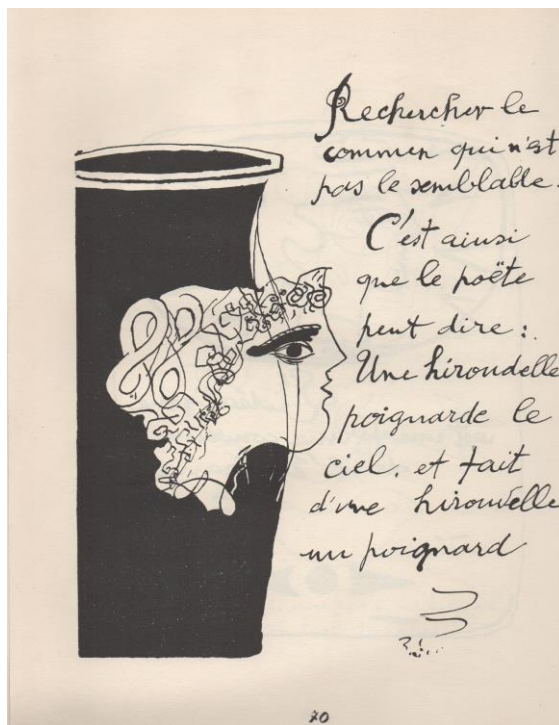 Rechercher le
commun qui n'est
pas le semblable.
C'est ainsi
que le poëte
peut dire :
Une hirondelle
poignarde le
ciel, et fait
d'une hirondelle
un poignard
70